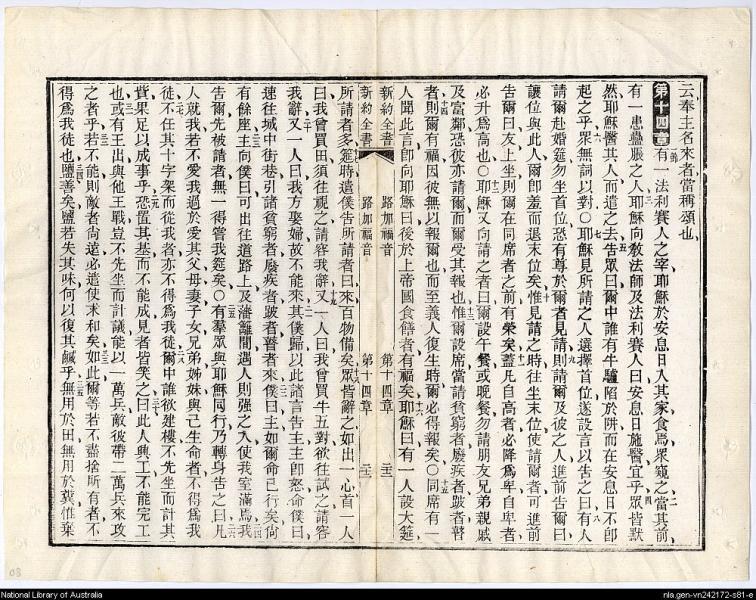 云奉主名來者當稱頌也
第十四章有一法利賽人之宰耶穌於安息日入其家食焉眾窺之當其前
有一患蠱脹之人耶穌向敎法師及法利賽人曰安息日施醫宜乎眾皆默
然耶穌醫其人而遣之去告眾曰爾中誰有牛驢陷於阱而在安息日不卽
起之乎眾無詞以對〇耶穌見所請之人選擇首位遂設言以告之曰有人
請爾赴婚筵勿坐首位恐有尊於爾者見請則請爾及彼之人進前告爾曰
讓位與此人爾卽羞而退末位矣惟見請之時往坐末位使請爾者可進前
告爾曰友上坐則爾在同席者之前有榮矣蓋凡自高者必降爲卑自卑者
必升爲高也〇耶穌又向請之者曰爾設午餐或晚餐勿請朋友兄弟親戚
及富鄰恐彼亦請爾而爾受其報也惟爾設席當請貧窮者廢疾者跛者瞽
者則爾有福因彼無以報爾也而至義人復生時爾必得報矣〇同席有一
人聞此言卽向耶穌曰後於上帝國食餅者有福矣耶穌曰有一人設大筵
新約全書 路加福音 第十四章
新約全書 路加福音 第十四章
所請者多筵時遣僕告所請者曰來百物備矣眾皆辭之如出一心首一人
曰我曾買田須往視之請容我辭又一人曰我曾買牛五對欲往試之請容
我辭又一人曰我方娶婦故不能來其僕歸以此諸言告主主卽怒命僕曰
速往城中街巷引諸貧窮者廢疾者跛者瞽者來僕曰主如爾命已行矣尙
有餘座主向僕曰可出往道路上及藩籬間遇人則强之入使我室滿焉我
告爾先被請者無一得嘗我筵矣〇有羣眾與耶穌同行乃轉身告之曰凡
人就我若不愛我過於愛其父母妻子女兄弟姊妹與己生命者不得爲我
徒不任其十字架而從我者亦不得爲我徒爾中誰欲建樓不先坐而計其
費果足以成事乎恐置其基而不能成見者皆笑之曰此人興工不能完工
也或有王出與他王戰豈不先坐而計議能以一萬兵敵彼帶二萬兵來攻
之者乎若不能則敵者尙遠必遣使求和矣如此爾等若不盡捨所有者不
得爲我徒也鹽善矣鹽若失其味何以復其鹹乎無用於田無用於糞惟棄
National Library of Australia
nla.gen-vn242172-s81-e